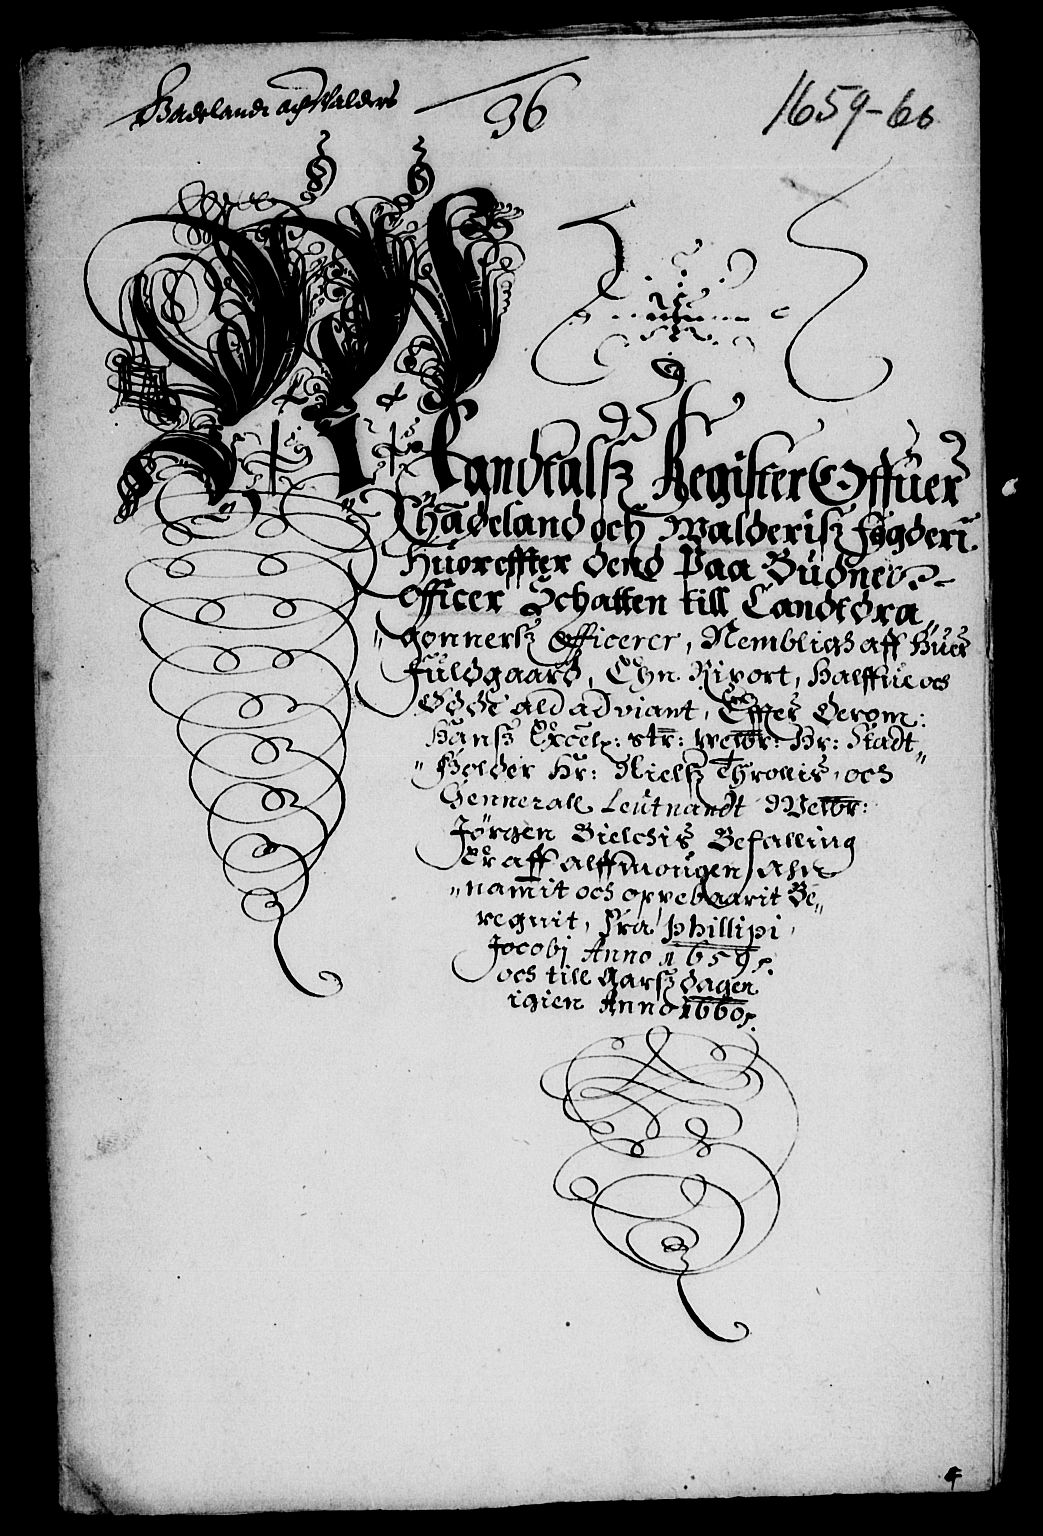 Hadelandt och Valders
36
1659-60
Mandtalsz Register Offuer
Hadeland och Walderisz fogderi.
Huoreffter dend Paa Budne
Officer Schatten till Landtdra„
„gonnersz Officerer, Nembligh aff huer
fuldgaard, En Rixort, Halffue och
Øde ald adviant, Effter derom:
Hansz Excel: Str: Welbr: Hr: Stadt„
„Holder Hr: Nielsz Throllis, och
Gennerall Leutnandt Welbr:
Jørgen Bielchis Befalling
Er aff alffmougen Ah„
„nammit och oppebaarit Be„
regnit, Fra Phillipi
Jocobj Anno 1659.
och till Aarsz dagen
igien Anno 1660.
4